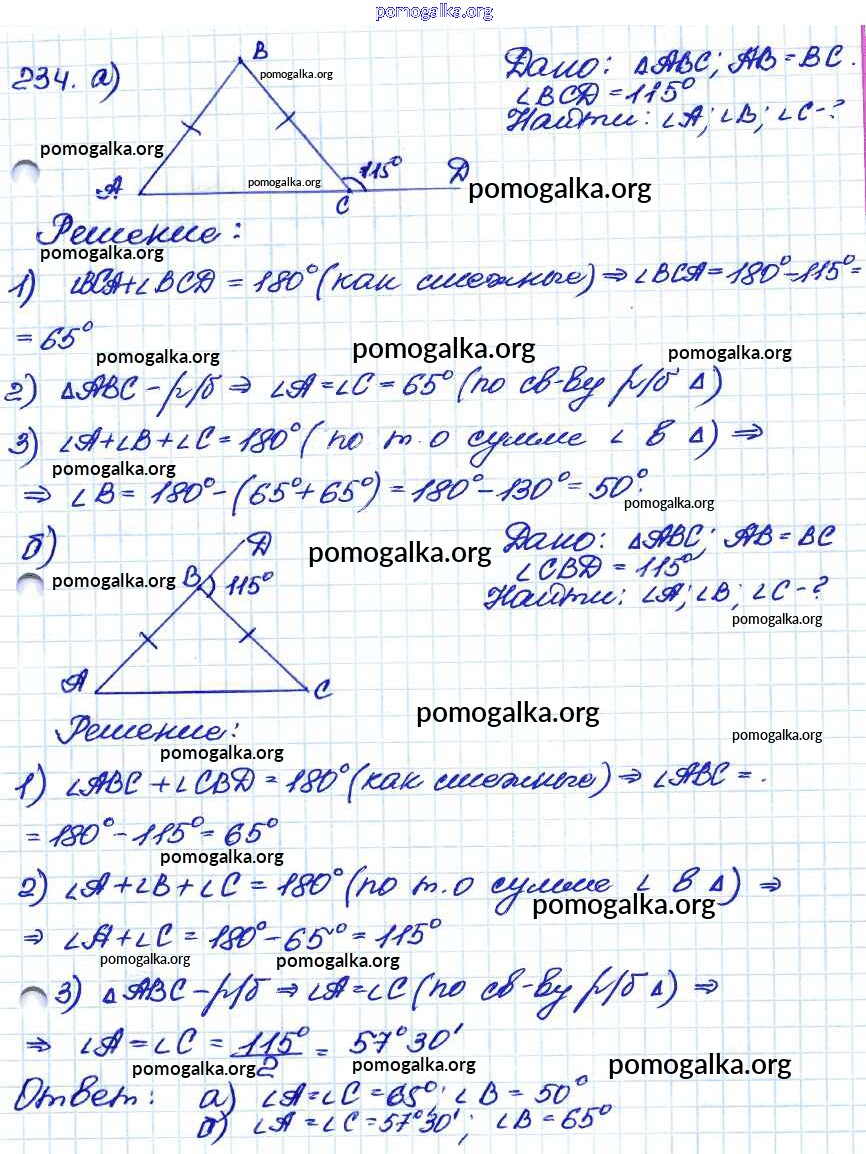 pomogalka.org
234. а)
B
pomogalka.org
Дано: ΔABC; AB = BC.
∠BCD = 115°
Найти: ∠A; ∠B; ∠C - ?
pomogalka.org
A
pomogalka.org
C
115°
D
pomogalka.org
Решение:
pomogalka.org
1) ∠BCA+∠BCD = 180° (как смежные) ⇒ ∠BCA = 180° - 115° =
= 65°
pomogalka.org
pomogalka.org
pomogalka.org
2) ΔABC - р/б ⇒ ∠A = ∠C = 65° (по св-ву р/б Δ)
3) ∠A+∠B+∠C = 180° (по т. о сумме ∠ в Δ) ⇒
pomogalka.org
⇒ ∠B = 180° - (65° + 65°) = 180° - 130° = 50°.
pomogalka.org
б)
D
pomogalka.org
Дано: ΔABC; AB = BC
pomogalka.org
B
115°
∠CBD = 115°
Найти: ∠A; ∠B; ∠C - ?
pomogalka.org
A
C
pomogalka.org
Решение:
pomogalka.org
pomogalka.org
1) ∠ABC + ∠CBD = 180° (как смежные) ⇒ ∠ABC = .
= 180° - 115° = 65°
pomogalka.org
2) ∠A+∠B+∠C = 180° (по т. о сумме ∠ в Δ) ⇒
pomogalka.org
⇒ ∠A+∠C = 180° - 65° = 115°
pomogalka.org
pomogalka.org
3) ΔABC - р/б ⇒ ∠A = ∠C (по св-ву р/б Δ) ⇒
⇒ ∠A = ∠C = 115°/2 = 57°30'
pomogalka.org
pomogalka.org
Ответ: а) ∠A = ∠C = 65°; ∠B = 50°
б) ∠A = ∠C = 57°30'; ∠B = 65°